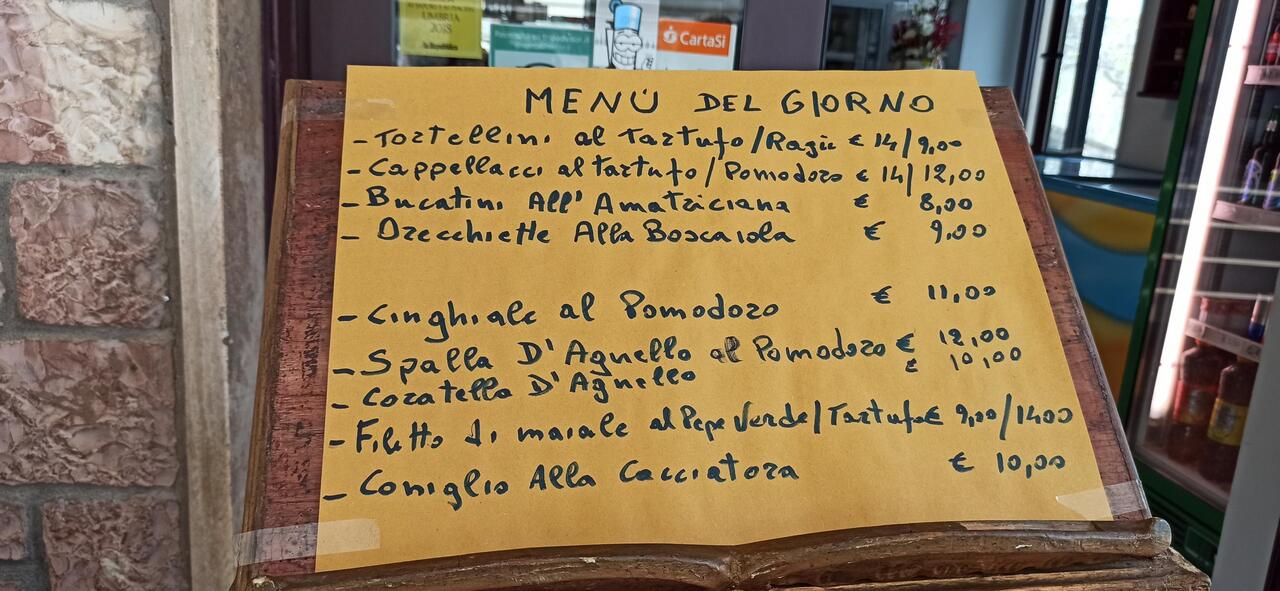 UMBRIA
2018
la Repubblica
CartaSi
MENÙ DEL GIORNO
- Tortellini al Tartufo/Ragù € 14/9,00
- Cappellacci al tartufo/Pomodoro € 14/12,00
- Bucatini All'Amatriciana € 8,00
- Orecchiette Alla Boscaiola € 9,00
- Cinghiale al Pomodoro € 11,00
- Spalla D'Agnello al Pomodoro € 12,00
- Coratella D'Agnello € 10,00
- Filetto di maiale al Pepe Verde/Tartufo € 9,00/1400
- Coniglio Alla Cacciatora € 10,00